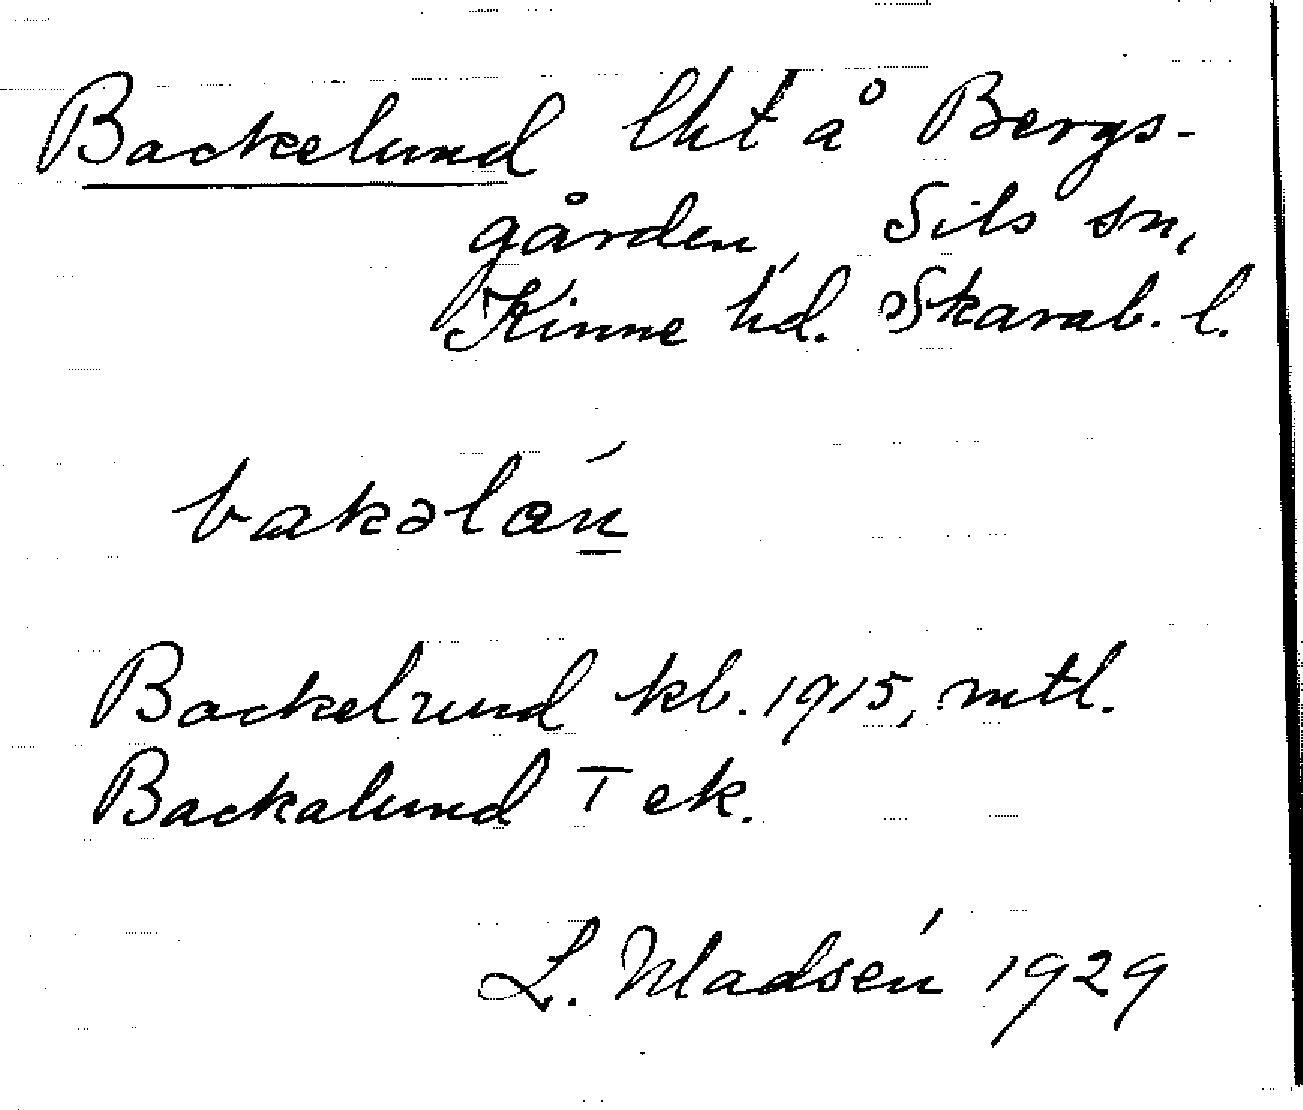 Backelund lht å Bergs-
gården, Sils sn,
Kinne hd. Skarab. l.
bakəlán
Backelund kb. 1915, mtl.
Backalund T ek.
L. Madsén 1929